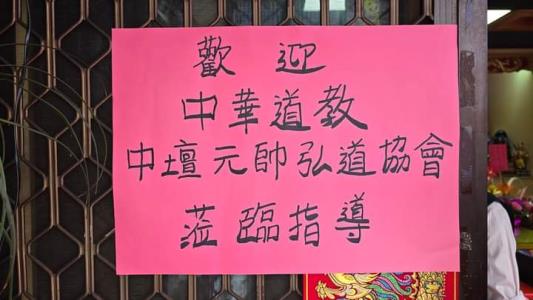 歡迎
中華道教
中壇元帥弘道協會
蒞臨指導